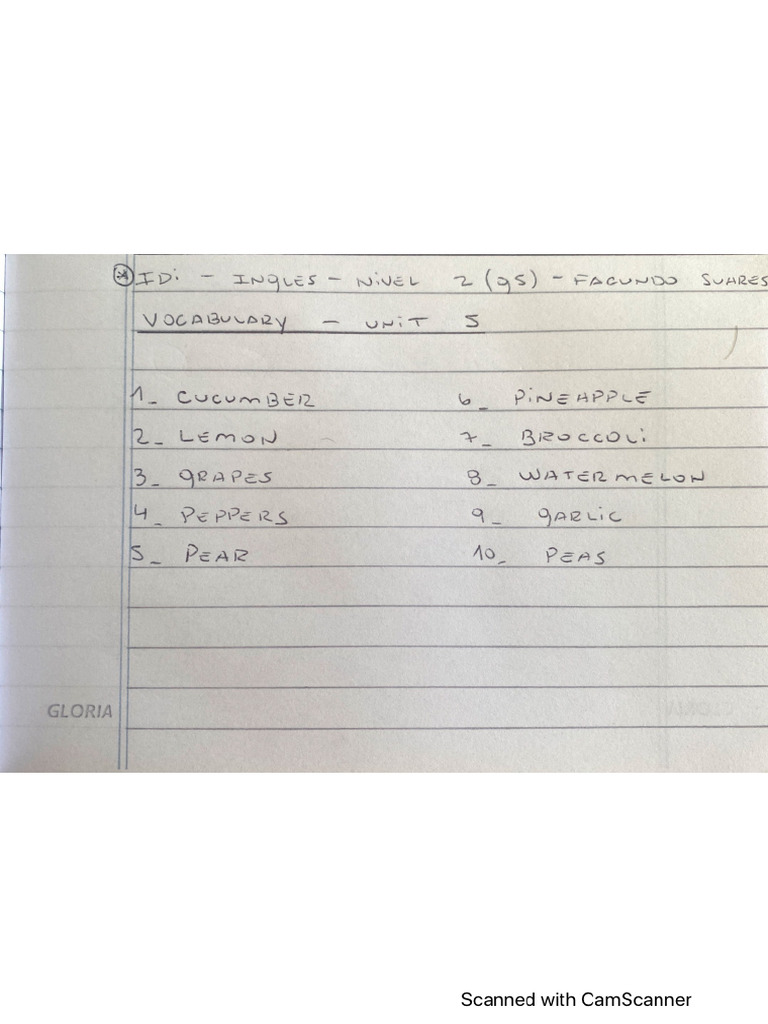 IDi - INGLES - NIVEL 2 (G5) - FACUNDO SUARES
VOCABULARY - UNIT 5
1_ CUCUMBER
2_ LEMON
3_ GRAPES
4_ PEPPERS
5_ PEAR
6_ PINEAPPLE
7_ BROCCOLI
8_ WATERMELON
9_ GARLIC
10_ PEAS
GLORIA
Scanned with CamScanner